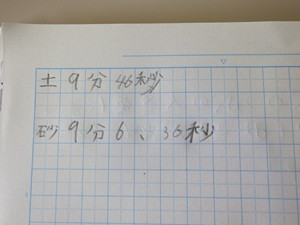 土 9分 46秒
砂 9分 6、36秒